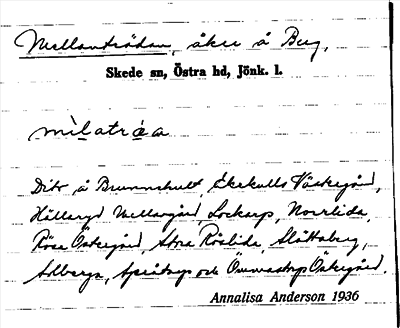 Mellanträdan, åker å Berg,
Skede sn, Östra hd, Jönk. l.
mìlatrǽa
Dito å Brunnshult, Ekekulls Västergård,
Hällaryd Mellangård, Lockarp, Norrlida,
Rösa Östergård, Stora Röslida, Slättaberg,
Solberga, och Östergård.
Annalisa Anderson 1936